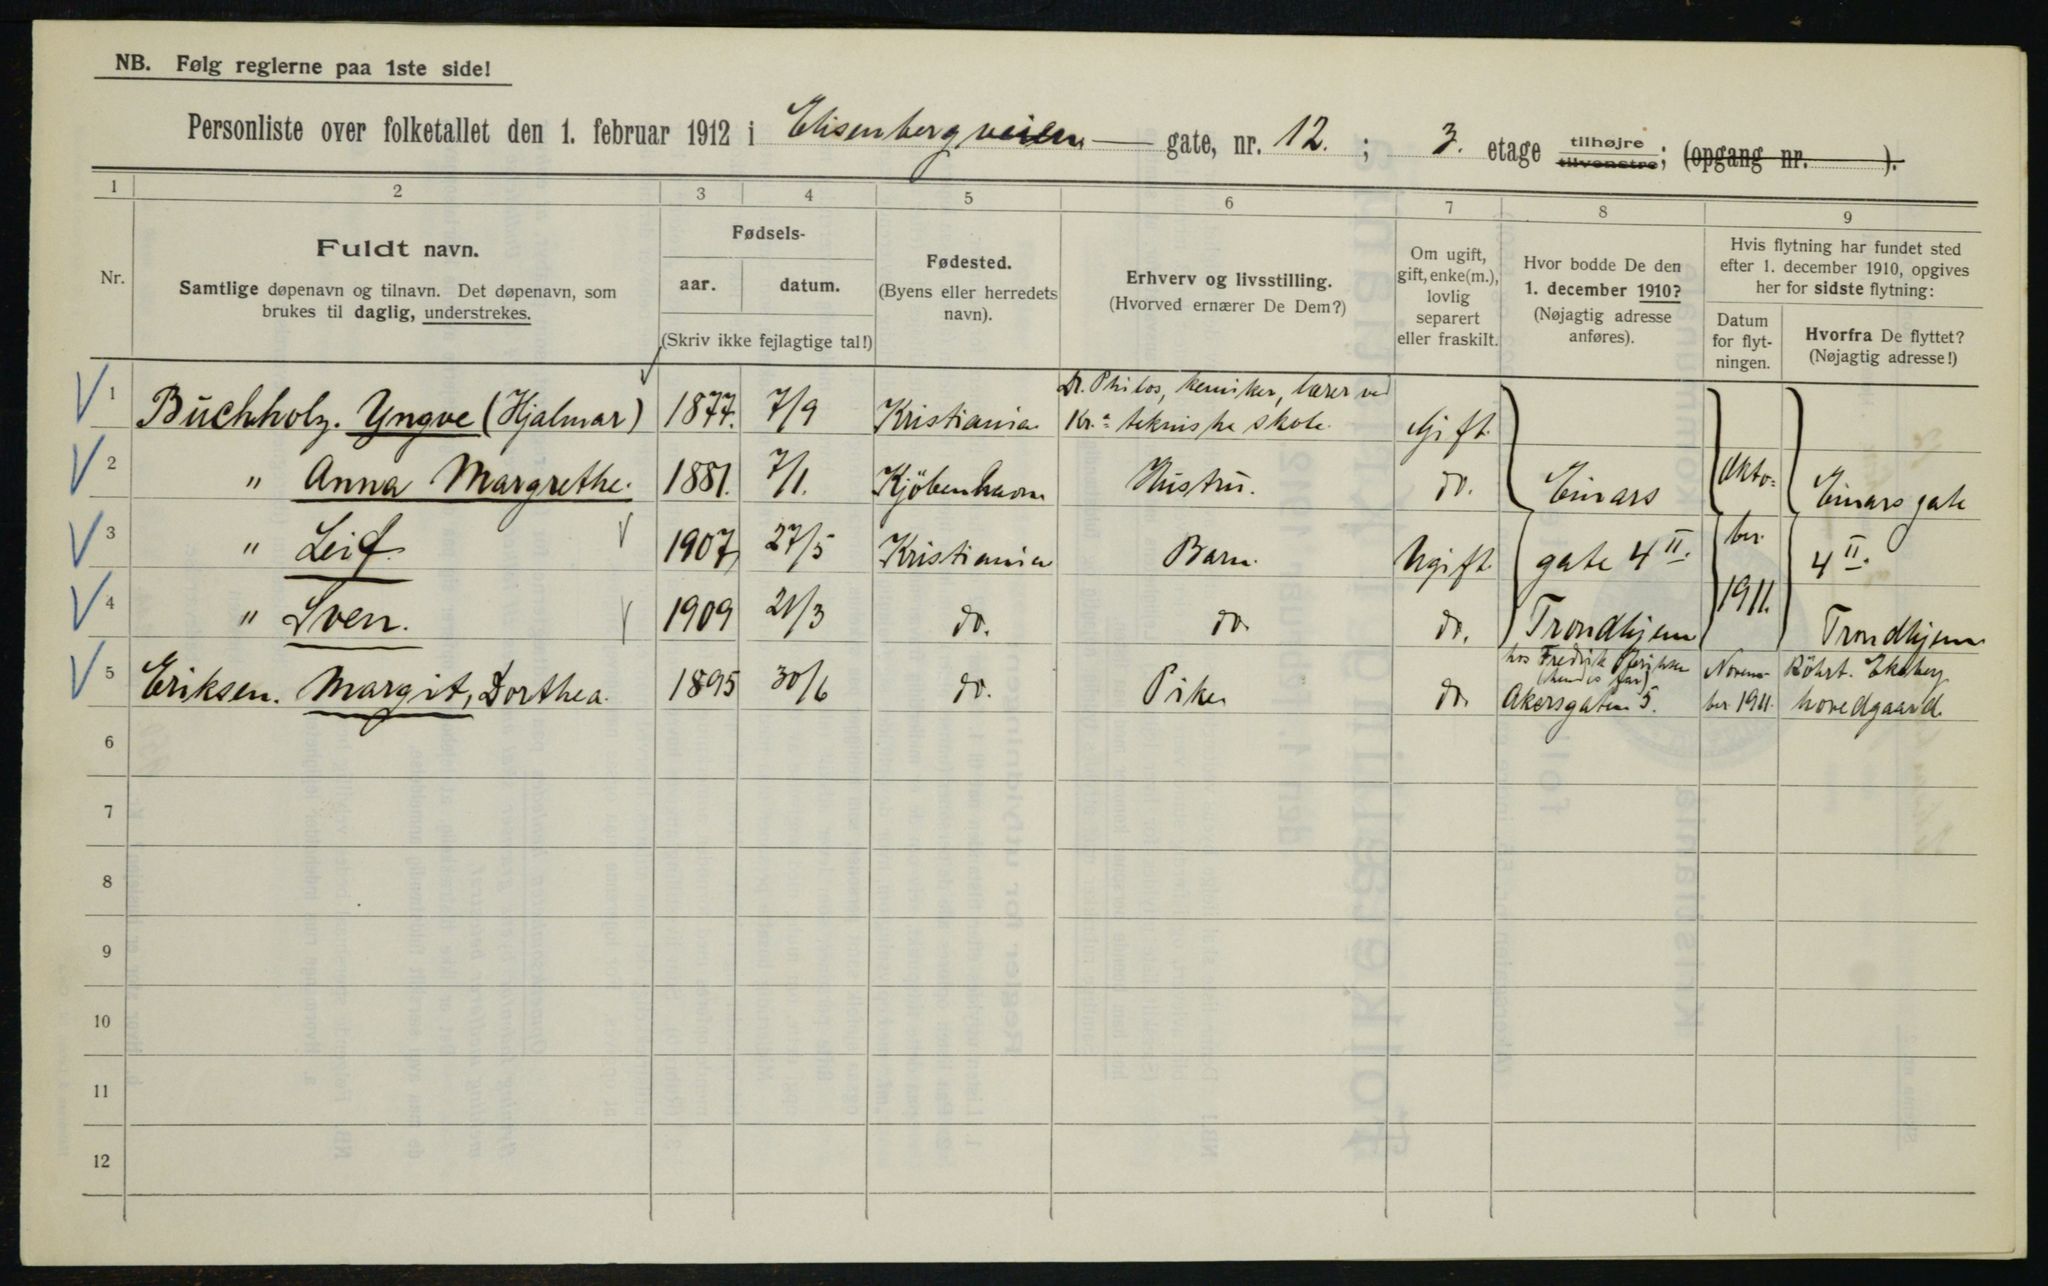 NB. Følg reglerne paa 1ste side!
Personliste over folketallet den 1. februar 1912 i Elisenbergveien gate, nr. 12. ; 3. etage tilhøjre tilvenstre; (opgang nr. ).
1 2 3 4 5 6 7 8 9
Nr.
Fuldt navn.
Samtlige døpenavn og tilnavn. Det døpenavn, som
brukes til daglig, understrekes.
Fødsels-
aar. datum.
(Skriv ikke fejlagtige tal!)
Fødested.
(Byens eller herredets
navn).
Erhverv og livsstilling.
(Hvorved ernærer De Dem?)
Om ugift,
gift, enke(m.),
lovlig
separert
eller fraskilt.
Hvor bodde De den
1. december 1910?
(Nøjagtig adresse
anføres).
Hvis flytning har fundet sted
efter 1. december 1910, opgives
her for sidste flytning:
Datum
for flyt-
ningen.
Hvorfra De flyttet?
(Nøjagtig adresse!)
1 Buchholz. Yngve (Hjalmar) 1877. 7/9 Kristiania Dr. Philos, kemiker, lærer ved
Kr.a tekniske skole. Gift.
2 " Anna Margrethe. 1881. 7/1. Kjöbenhavn Hustru. do. Einars Okto- Einars gate
3 " Leif. 1907, 27/5 Kristiania Barn. Ugift. gate 4 II. ber. 4 II.
4 " Sven. 1909 21/3 do. do. do. Trondhjem 1911. Trondhjem
5 Eriksen. Margit, Dorthea. 1895 30/6 do. Pike. do. hos Fredrik
(hendes far)
Akersgaten 5. Novem-
ber 1911. Ekeberg
hovedgaard.
6
7
8
9
10
11
12